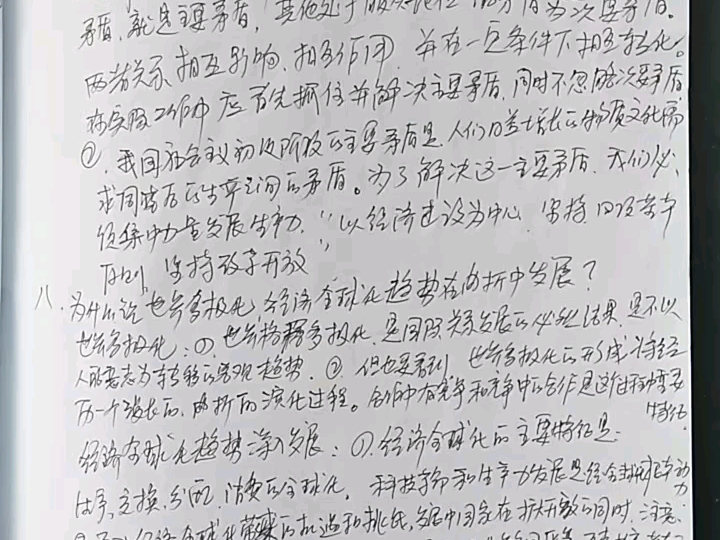 矛盾，就是主要矛盾，其他处于服从地位的矛盾为次要矛盾。
两者关系相互影响、相互作用，并在一定条件下相互转化。
在实际工作中应首先抓住并解决主要矛盾，同时不忽略次要矛盾
②．我国社会主义初级阶段的主要矛盾是人们日益增长的物质文化需
求同落后的生产之间的矛盾。为了解决这一主要矛盾，我们必
须集中力量发展生产力，“以经济建设为中心，坚持四项基本
原则，坚持改革开放”
八．为什么说世界多极化、经济全球化趋势在曲折中发展？
世界多极化：①．世界格局多极化，是国际关系发展的必然结果，是不以
人的意志为转移的客观趋势．②．但也要看到，世界多极化的形成将经
历一个漫长的、曲折的演化过程。合作中有竞争和竞争中的合作是这个过程中重要
特征
经济全球化趋势深入发展：①．经济全球化的主要特征是：
生产，交换，分配，消费的全球化，科技革命和生产力发展是经济全球化的根本动
力
经济全球化带来的机遇和挑战，发展中国家在扩大开放的同时，注意